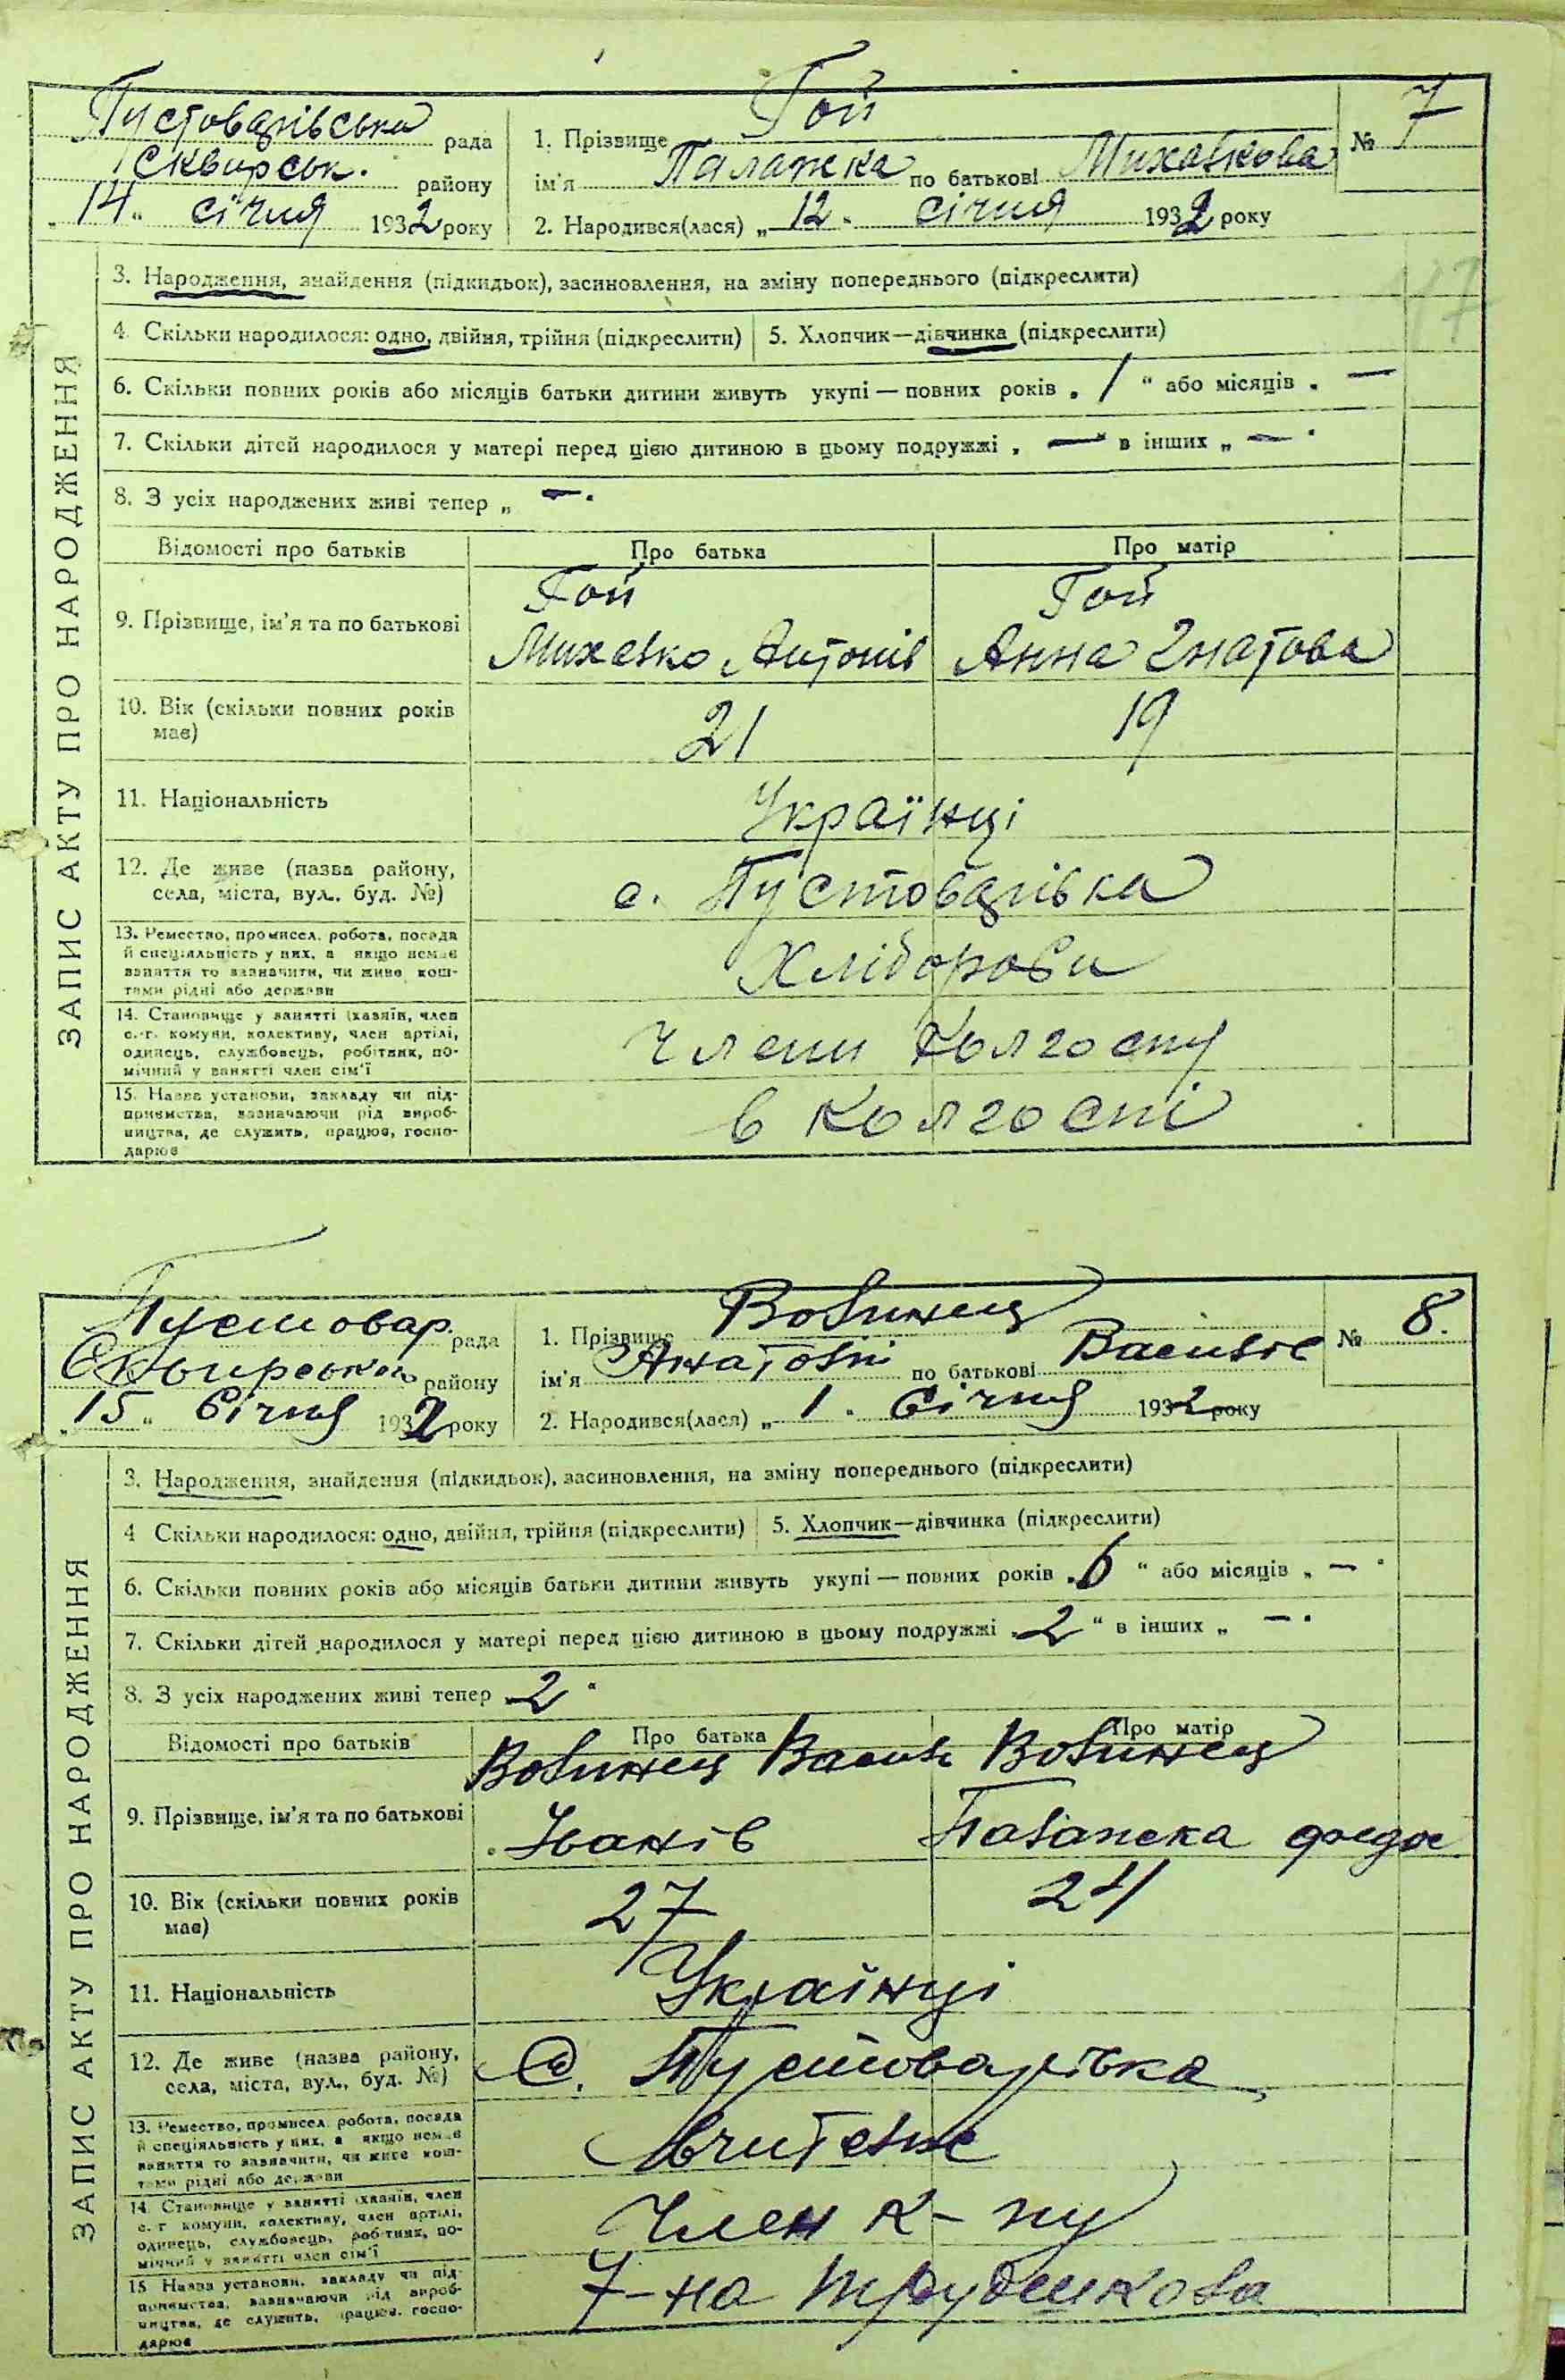 Пустоварівська рада
Сквирськ. району
„14“ січня 1932 року
1. Прізвище Гой
ім'я Палажка по батькові Михалкова
2. Народився(лася) „12“ січня 1932 року
№ 7
17
ЗАПИС АКТУ ПРО НАРОДЖЕННЯ
3. Народження, знайдення (підкидьок), засиновлення, на зміну попереднього (підкреслити)
4. Скільки народилося: одно, двійня, трійня (підкреслити) 5. Хлопчик—дівчинка (підкреслити)
6. Скільки повних років або місяців батьки дитини живуть укупі — повних років „1“ або місяців „—
7. Скільки дітей народилося у матері перед цією дитиною в цьому подружжі „—“ в інших „—“
8. З усіх народжених живі тепер „—“
Відомості про батьків Про батька Про матір
9. Прізвище, ім'я та по батькові
Гой
Михалко Антонів
Гой
Анна Гнатова
10. Вік (скільки повних років має)
21 19
11. Національність
Українці
12. Де живе (назва району,
села, міста, вул., буд. №)
с. Пустоварівка
13. Ремество, промисел, робота, посада
й спеціяльність у них, а якщо немає
заняття то зазначити, чи живе кош-
тами рідні або держави
Хлібороби
14. Становище у занятті (хазяїн, член
с.-г. комуни, колективу, член артілі,
одинець, службовець, робітник, по-
мічний у занятті член сім'ї
Члени колгоспу
15. Назва установи, закладу чи під-
приємства, зазначаючи рід вироб-
ництва, де служить, працює, госпо-
дарює
в колгоспі
Пустовар. рада
Сквирського району
„15“ Січня 1932 року
1. Прізвище Волинець
ім'я Анатолій по батькові Василів
2. Народився(лася) „1“ Січня 1932 року
№ 8.
ЗАПИС АКТУ ПРО НАРОДЖЕННЯ
3. Народження, знайдення (підкидьок), засиновлення, на зміну попереднього (підкреслити)
4 Скільки народилося: одно, двійня, трійня (підкреслити) 5. Хлопчик—дівчинка (підкреслити)
6. Скільки повних років або місяців батьки дитини живуть укупі — повних років „6“ або місяців „—“
7. Скільки дітей народилося у матері перед цією дитиною в цьому подружжі „2“ в інших „—“
8. З усіх народжених живі тепер „2“
Відомості про батьків Про батька Про матір
9. Прізвище, ім'я та по батькові
Волинець Василь
Іванів
Волинець
Палажка Федос
10. Вік (скільки повних років
має)
27 24
11. Національність
Українці
12. Де живе (назва району,
села, міста, вул., буд. №)
С. Пустоварівка
13. Ремество, промисел, робота, посада
й спеціяльність у них, а якщо немає
заняття то зазначити, чи живе кош-
тами рідні або держави
Вчителі
14. Становище у занятті (хазяїн, член
с.-г. комуни, колективу, член артілі,
одинець, службовець, робітник, по-
мічний у занятті член сім'ї
Член к-пу
15. Назва установи, закладу чи під-
приємства, зазначаючи рід вироб-
ництва, де служить, працює, госпо-
дарює
7-на Трудшкола